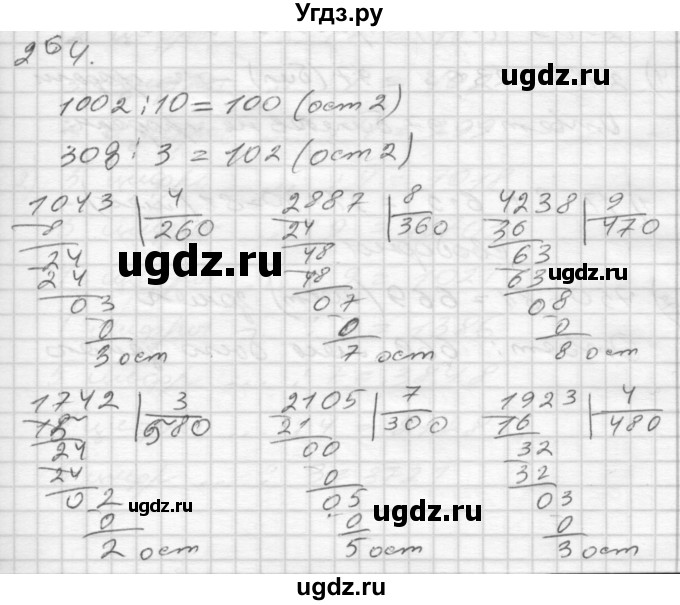 Угдз.ру
254.
1002 : 10 = 100 (ост 2)
308 : 3 = 102 (ост 2)
1043 | 4
8 260
24
24
03
0
3 ост
2887 | 8
24 360
48
48
07
0
7 ост
4238 | 9
36 470
63
63
08
0
8 ост
ugdz.ru
ugdz.ru
1742 | 3
15 580
24
24
02
0
2 ост
2105 | 7
21 300
00
0
05
0
5 ост
1923 | 4
16 480
32
32
03
0
3 ост
ugdz.ru
ugdz.ru
ugdz.ru
ugdz.ru